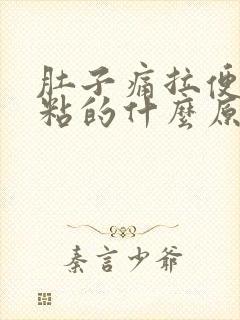 肚子痛拉便
粘的什麼原
秦言少爷